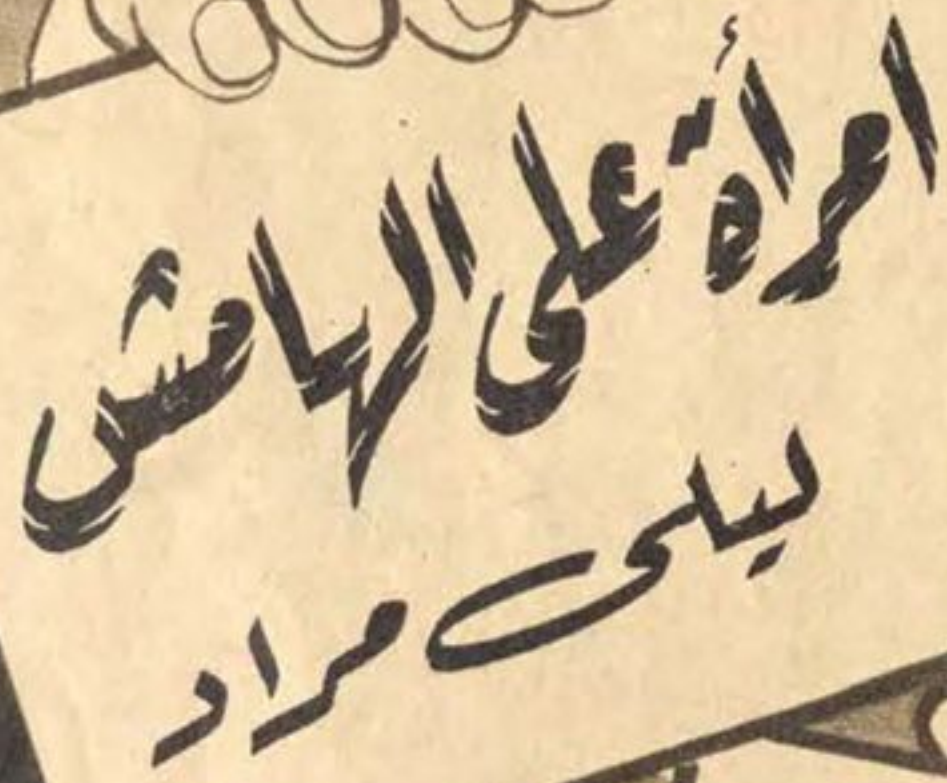 امرأة على الهامش
ليلى مراد